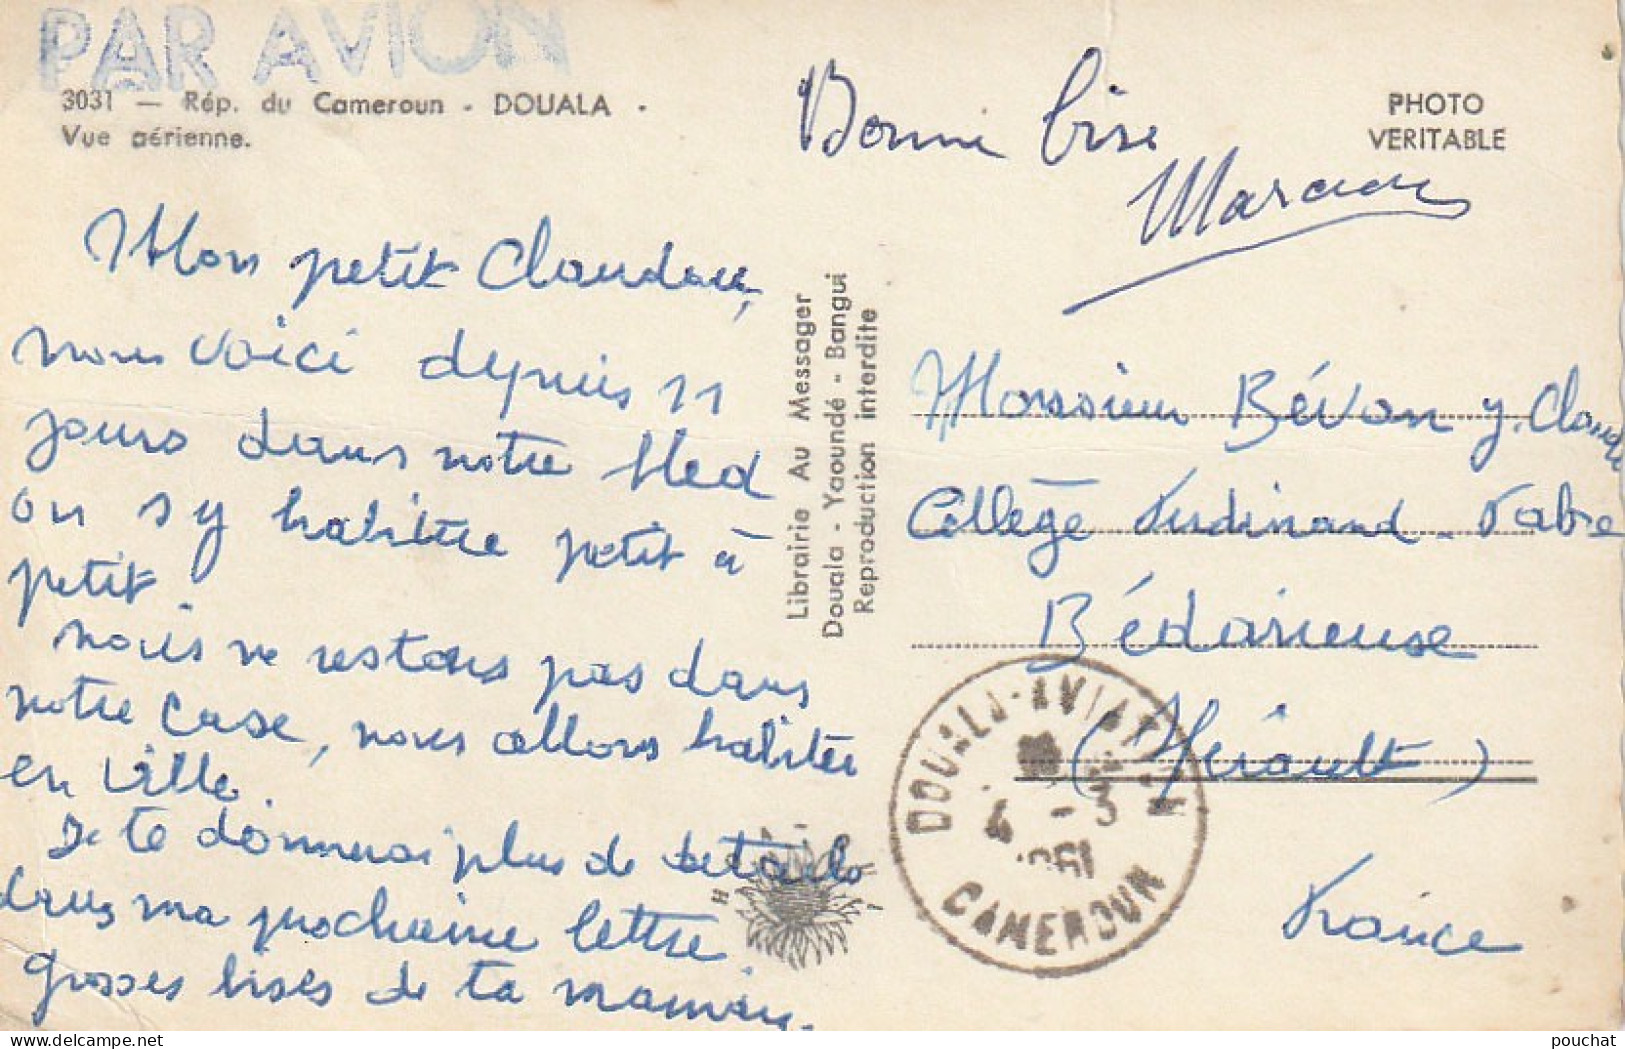 PAR AVION
3031 — Rép. du Cameroun - DOUALA -
Vue aérienne.
Mon petit Claudou,
nous voici depuis 11
jours dans notre bled
on s'y habitue petit à
petit.
nous ne restons pas dans
notre case, nous allons habiter
en ville.
Je te donnerai plus de détails
dans ma prochaine lettre
grosses bises de ta maman.
Librairie Au Messager
Douala - Yaoundé - Bangui
Reproduction interdite
Bonne bise
PHOTO
VERITABLE
Monsieur Bévon J. Claude
Collège Ferdinand-Fabre
Bédarieuse
(Hérault)
France
DOUALA-AVIATION
4 -3
1961
CAMEROUN
pouchat